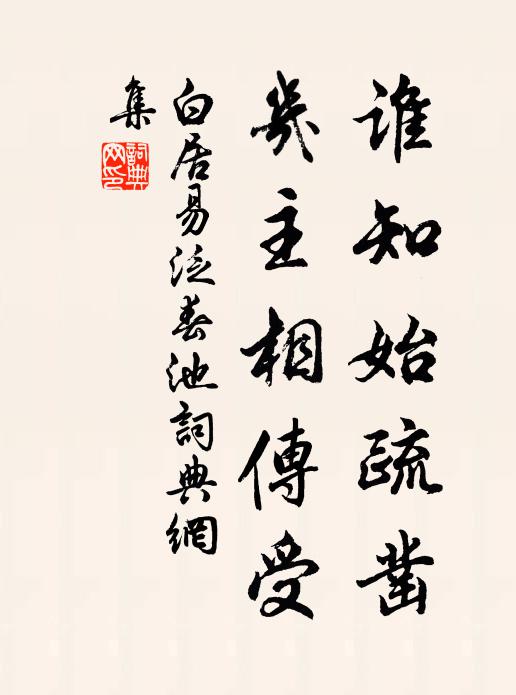 誰知始疏鑿
幾主相傳受
白居易泛春池詞典網
集
詞典網印